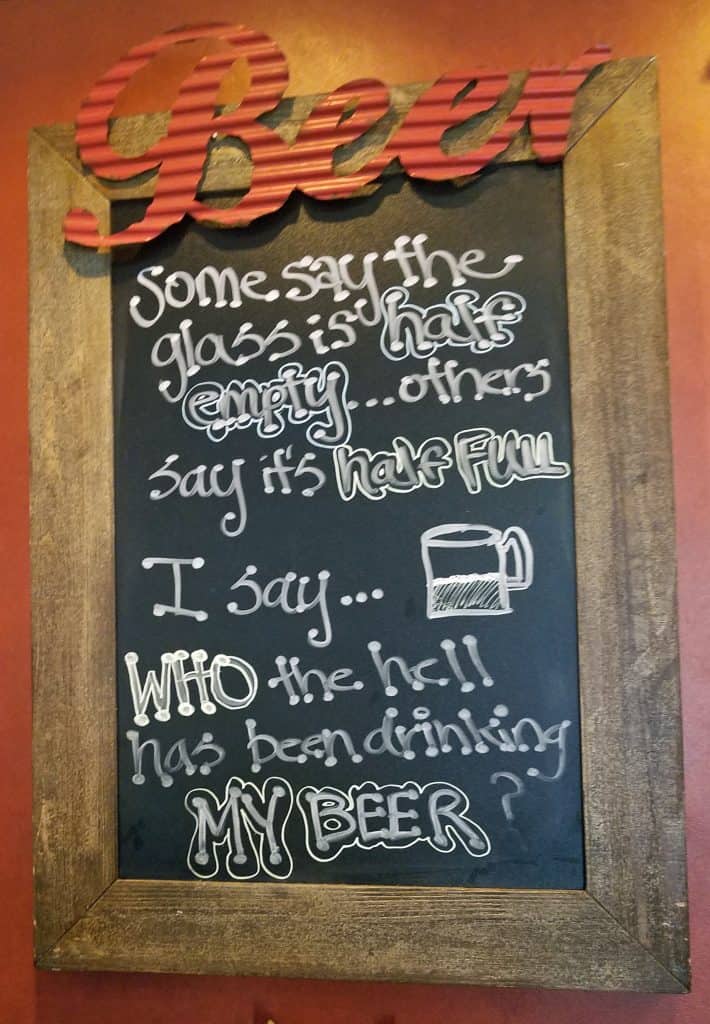 Beer
Some say the
glass is half
empty...others
say it's half FULL
I say...
WHO the hell
has been drinking
MY BEER ?